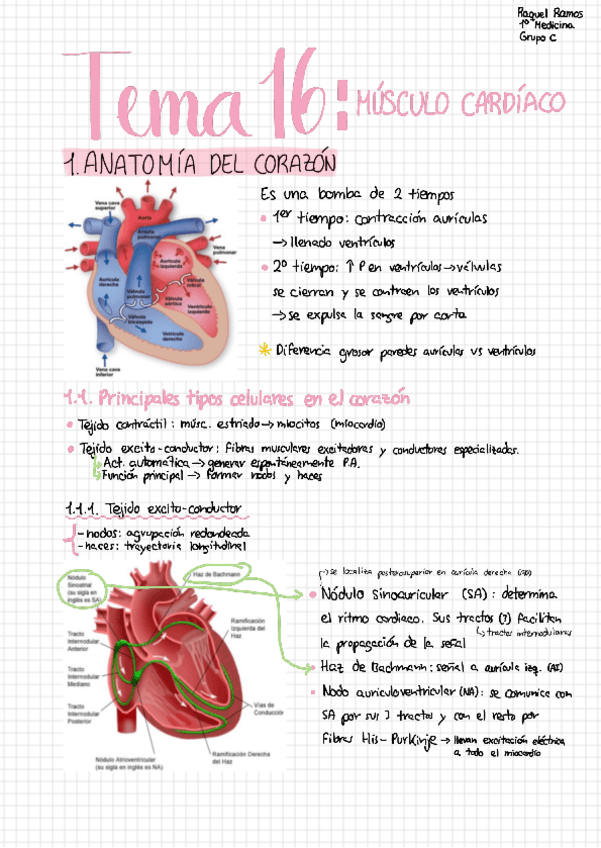 Raquel Ramos
1º Medicina
Grupo C
Tema 16: MÚSCULO CARDÍACO
1. ANATOMÍA DEL CORAZÓN
Vena cava superior
Aorta
Arteria pulmonar
Vena pulmonar
Aurícula izquierda
Aurícula derecha
Válvula mitral
Válvula pulmonar
Válvula aórtica
Ventrículo izquierdo
Válvula tricúspide
Ventrículo derecho
Vena cava inferior
Es una bomba de 2 tiempos
• 1er tiempo: contracción aurículas
→ llenado ventrículos
• 2º tiempo: ↑ P en ventrículos → válvulas
se cierran y se contraen los ventrículos
→ se expulsa la sangre por aorta
* Diferencia grosor paredes aurículas vs ventrículos
1.1. Principales tipos celulares en el corazón
• Tejido contráctil: músc. estriado → miocitos (miocardio)
• Tejido excito-conductor: fibras musculares excitadoras y conductoras especializadas.
Act. automática → generar espontáneamente P.A.
Función principal → formar nodos y haces
1.1.1. Tejido excito-conductor
- nodos: agrupación redondeada
- haces: trayectoria longitudinal
Nódulo Sinoatrial (su sigla en inglés es SA)
Haz de Bachmann
Ramificación Izquierda del Haz
Tracto Internodular Anterior
Tracto Internodular Mediano
Tracto Internodular Posterior
Vías de Conducción
Nódulo Atrioventricular (su sigla en inglés es NA)
Ramificación Derecha del Haz
→ se localiza posterosuperior en aurícula derecha (AD)
• Nódulo Sinoauricular (SA): determina
el ritmo cardiaco. Sus tractos (3) facilitan
→ tractos internodulares
la propagación de la señal
• Haz de Bachmann: señal a aurícula izq. (AI)
• Nodo auriculoventricular (NA): se comunica con
SA por sus 3 tractos y con el resto por
fibras His-Purkinje → llevan excitación eléctrica
a todo el miocardio